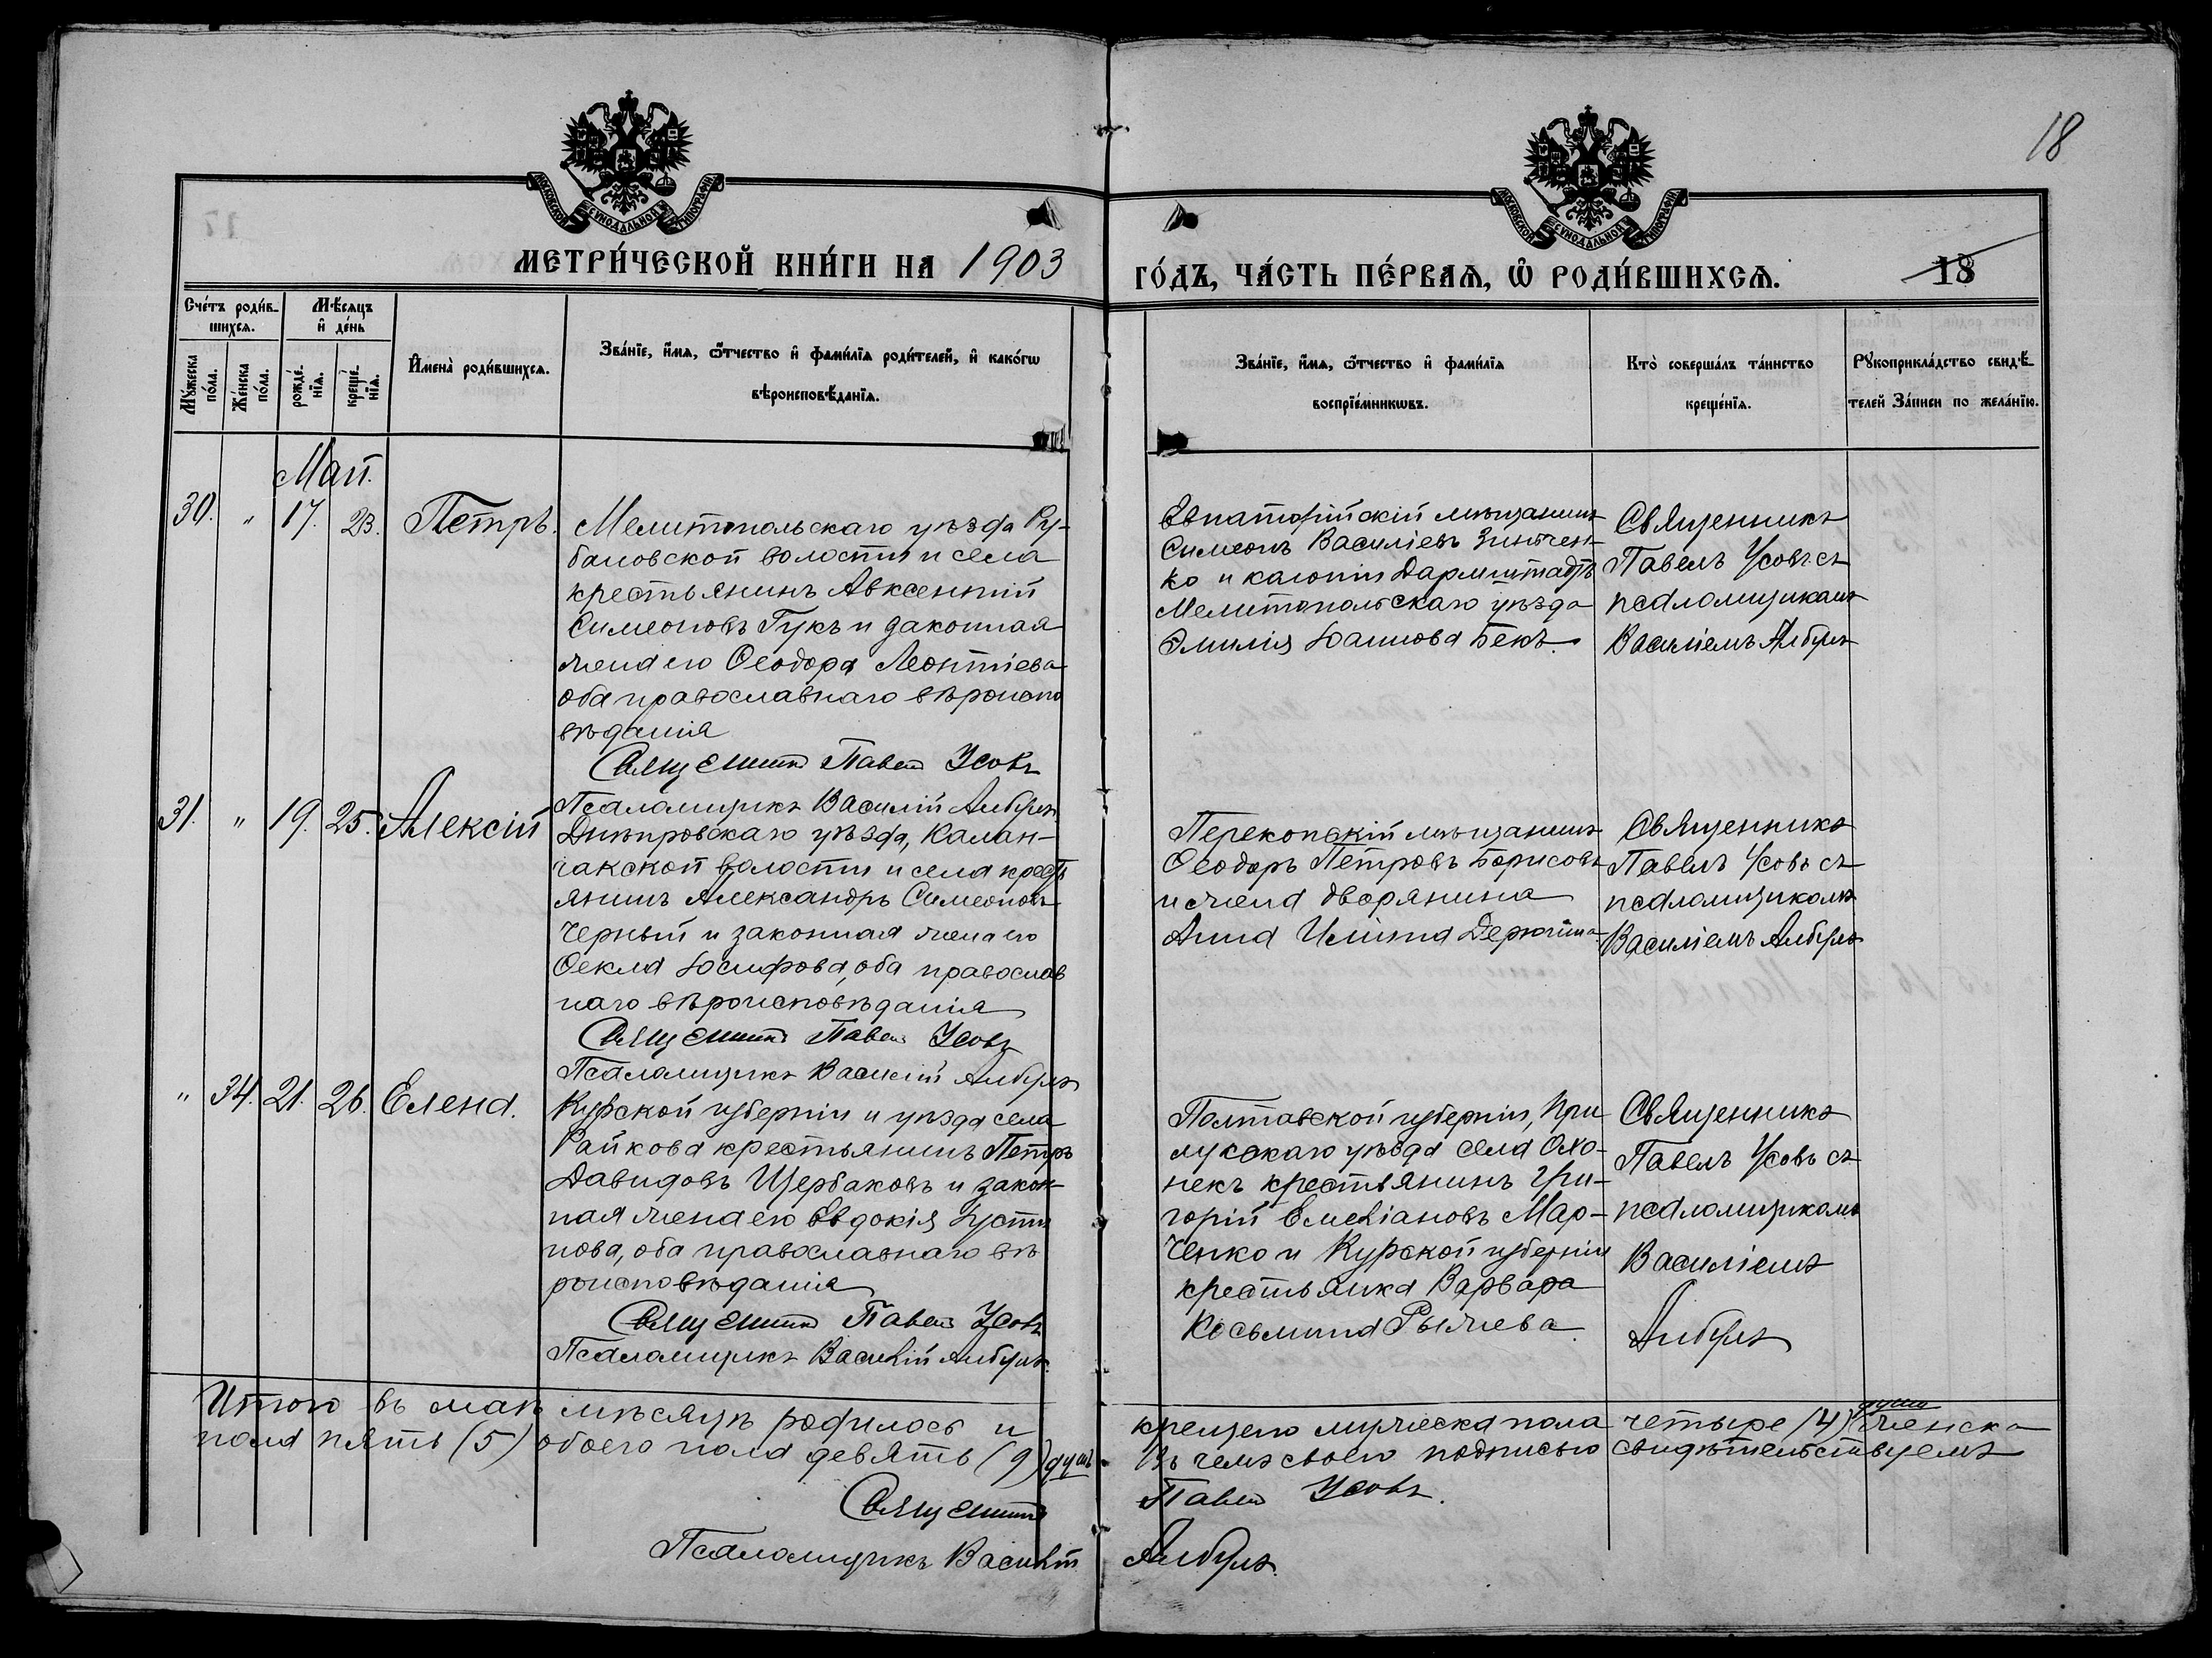 18
МОСКОВСКОЙ СѴНОДАЛЬНОЙ ТИПОГРАФІИ
МОСКОВСКОЙ СѴНОДАЛЬНОЙ ТИПОГРАФІИ
МЕТРИ́ЧЕСКОЙ КНИ́ГИ НА 1903
ГО́ДЪ, ЧА́СТЬ ПЕ́РВАѦ, Ѽ РОДИ́ВШИХСѦ.
18
Сче́тъ роди́в-
шихсѧ.
Мѣ́сѧцъ
и҆ де́нь
Мꙋ́жеска по́ла.
Же́нска по́ла.
рожде́-
нїѧ.
креще́-
нїѧ.
И҆мена̀ роди́вшихсѧ.
Зва́нїе, и҆́мѧ, ѻ҆́тчество и҆ фами́лїѧ роди́телей, и҆ како́гѡ
вѣроисповѣ́данїѧ.
Зва́нїе, и҆́мѧ, ѻ҆́тчество и҆ фами́лїѧ
воспрїе́мникѡвъ.
Кто̀ соверша́лъ та́инство
креще́нїѧ.
Рꙋкоприкла́дство свидѣ́-
телей За́писи по жела́нїю.
Май.
30. " 17. 23. Петръ.
Мелитопольскаго уѣзда Ру-
бановской волости и села
крестьянинъ Авксентій
Симеоновъ Гукъ и законная
жена его Ѳеодора Леонтіева
оба православнаго вѣроиспо
вѣданія
Священникъ Павелъ Усовъ
Псаломщикъ Василій Албулъ
Евпаторійскій мѣщанинъ
Симеонъ Василіевъ Зинчен-
ко и калоніи Дармштадтъ
Мелитопольскаго уѣзда
Эмилія Іоаннова Бекъ.
Священникъ
Павелъ Усовъ съ
псаломщикомъ
Василіемъ Албулъ
31. " 19. 25. Алексій
Днѣпровскаго уѣзда, Калан-
чакской волости и села кресть
янинъ Александръ Симеоновъ
Черный и законная жена его
Ѳекла Іосифова, оба православ
наго вѣроисповѣданія
Священникъ Павелъ Усовъ
Псаломщикъ Василій Албулъ
Перекопскій мѣщанинъ
Ѳеодоръ Петровъ Борисовъ
и жена дворянина
Анна Илiина Дерюгина
Священникъ
Павелъ Усовъ съ
псаломщикомъ
Василіемъ Албулъ
" 34. 21. 26. Елена.
Курской губерніи и уѣзда села
Райкова крестьянинъ Петръ
Давидовъ Щербаковъ и закон-
ная жена его Евдокія Іусти
нова, оба православнаго вѣ
роисповѣданія
Священникъ Павелъ Усовъ
Псаломщикъ Василій Албулъ.
Полтавской губерніи, При
лукскаго уѣзда села Охо-
некъ крестьянинъ Гри-
горій Емеліановъ Мар-
ченко и Курской губерніи
крестьянка Варвара
Косьмина Рыжева.
Священникъ
Павелъ Усовъ съ
псаломщикомъ
Василіемъ
Албулъ
Итого въ маѣ мѣсяцѣ родилось и крещено мужеска пола четыре (4) души женска
пола пять (5) обоего пола девять (9) душъ. Въ чемъ своею подписью свидѣтельствуемъ
Священникъ Павелъ Усовъ.
Псаломщикъ Василій Албулъ.